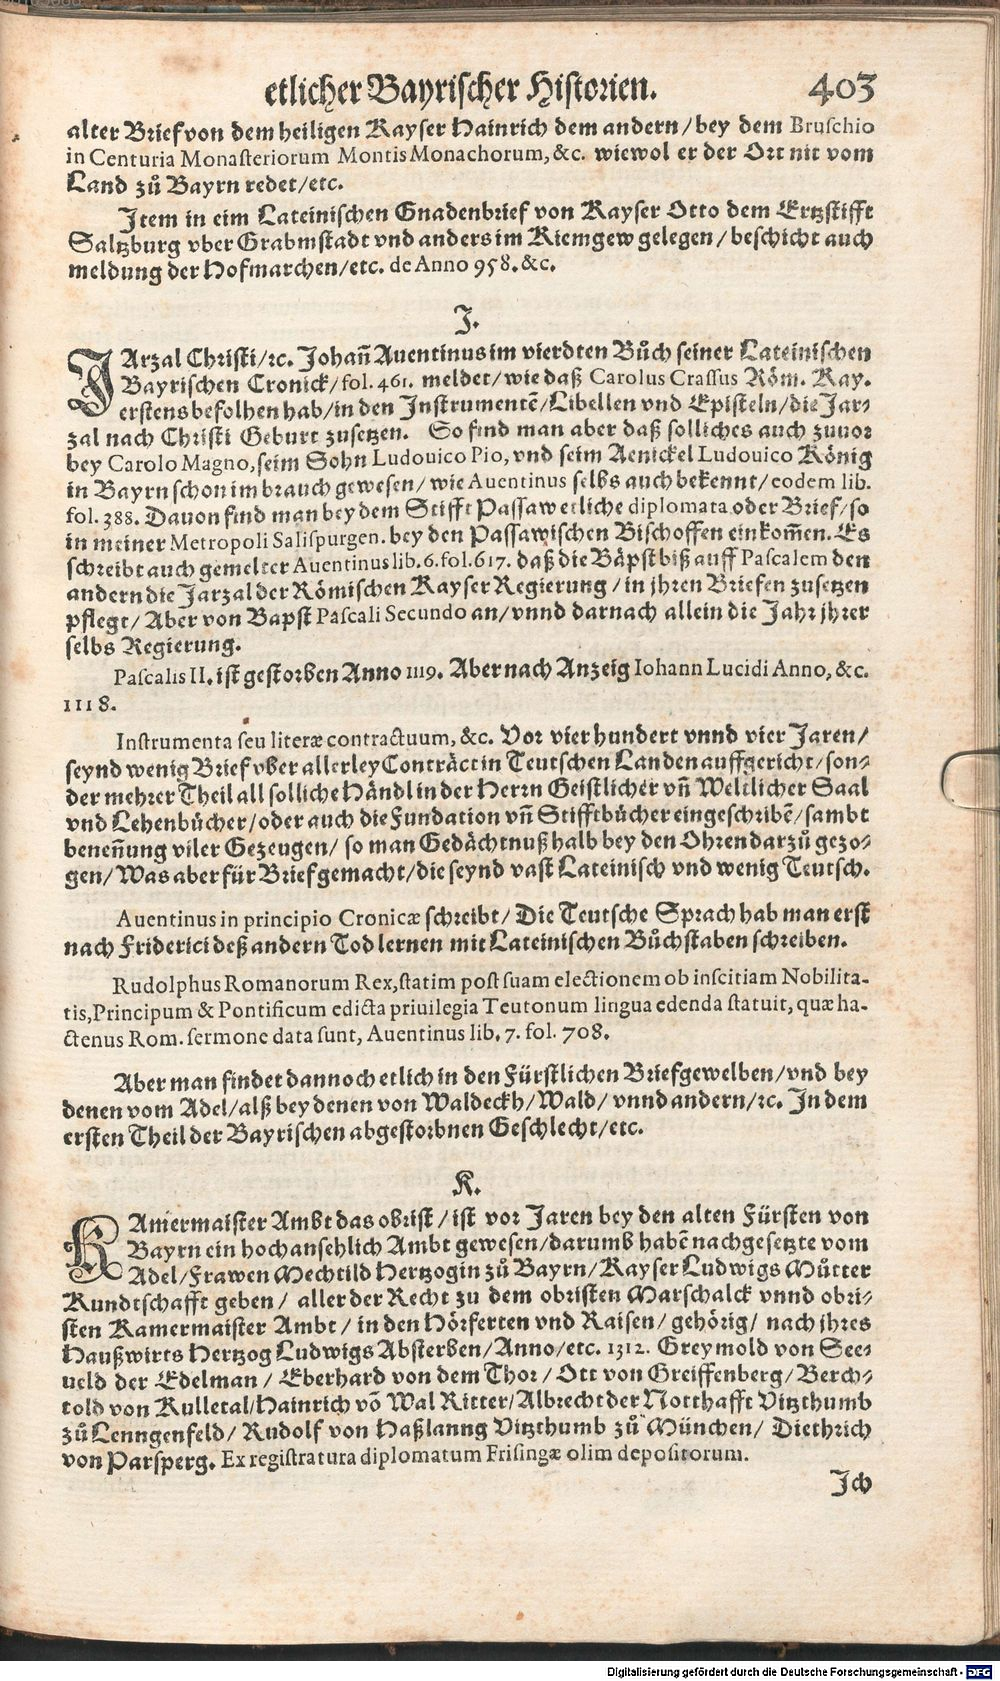 etlicher Bayrischer Historien. 403
alter Brief von dem heiligen Kayser Hainrich dem andern/ bey dem Bruschio
in Centuria Monasteriorum Montis Monachorum, &c. wiewol er der Ort nit vom
Land zů Bayrn redet/etc.
Item in eim Lateinischen Gnadenbrief von Kayser Otto dem Ertzstifft
Saltzburg vber Grabmstadt vnd anders im Kiemgew gelegen/ beschicht auch
meldung der Hofmarchen/etc. de Anno 958. &c.
J.
JArzal Christi/ꝛc. Johañ Auentinus im vierdten Bůch seiner Lateinischen
Bayrischen Cronick/ fol. 461. meldet/ wie daß Carolus Crassus Röm. Kay.
erstens befolhen hab/ in den Instrumentẽ/ Libellen vnd Episteln/ die Jar-
zal nach Christi Geburt zusetzen. So find man aber daß solliches auch zuuor
bey Carolo Magno, seim Sohn Ludouico Pio, vnd seim Aenickel Ludouico König
in Bayrn schon im brauch gewesen/ wie Auentinus selbs auch bekennt/ eodem lib.
fol. 388. Dauon find man bey dem Stifft Passaw etliche diplomata, oder Brief/ so
in meiner Metropoli Salispurgen. bey den Passawischen Bischoffen einkom̃en. Es
schreibt auch gemelter Auentinus lib. 6. fol. 617. daß die Bäpst biß auff Pascalem den
andern die Jarzal der Römischen Kayser Regierung/ in jhren Briefen zusetzen
pflegt/ Aber von Bapst Pascali Secundo an/ vnnd darnach allein die Jahr jhrer
selbs Regierung.
Pascalis II. ist gestorben Anno 1119. Aber nach Anzeig Iohann Lucidi Anno, &c.
1118.
Instrumenta seu literæ contractuum, &c. Vor vier hundert vnnd vier Jaren/
seynd wenig Brief vber allerley Conträct in Teutschen Landen auffgericht/ son-
der mehrer Theil all solliche Händl in der Herrn Geistlicher vñ Weltlicher Saal
vnd Lehenbücher/ oder auch die Fundation vñ Stifftbücher eingeschribẽ/ sambt
beneñung viler Gezeugen/ so man Gedächtnuß halb bey den Ohren darzů gezo-
gen/ Was aber für Brief gemacht/ die seynd vast Lateinisch vnd wenig Teutsch.
Auentinus in principio Cronicæ schreibt/ Die Teutsche Sprach hab man erst
nach Friderici deß andern Tod lernen mit Lateinischen Bůchstaben schreiben.
Rudolphus Romanorum Rex, statim post suam electionem ob inscitiam Nobilita-
tis, Principum & Pontificum edicta priuilegia Teutonum lingua edenda statuit, quæ ha-
ctenus Rom. sermone data sunt, Auentinus lib. 7. fol. 708.
Aber man findet dannoch etlich in den Fürstlichen Briefgewelben/ vnd bey
denen vom Adel/ alß bey denen von Waldeckh/ Wald/ vnnd andern/ꝛc. In dem
ersten Theil der Bayrischen abgestorbnen Geschlecht/etc.
K.
KAmermaister Ambt das obrist/ ist vor Jaren bey den alten Fürsten von
Bayrn ein hochansehlich Ambt gewesen/ darumb habẽ nachgesetzte vom
Adel/ Frawen Mechtild Hertzogin zů Bayrn/ Kayser Ludwigs Můtter
Kundtschafft geben/ aller der Recht zu dem obristen Marschalck vnnd obri-
sten Kamermaister Ambt/ in den Hörferten vnd Raisen/ gehörig/ nach jhres
Haußwirts Hertzog Ludwigs Absterben/ Anno/etc. 1312. Greymold von See-
ueld der Edelman/ Eberhard von dem Thor/ Ott von Greiffenberg/ Berch-
told von Kulletal/ Hainrich võ Wal Ritter/ Albrecht der Notthafft Vitzthumb
zů Lenngenfeld/ Rudolf von Haßlanng Vitzthumb zů München/ Diethrich
von Parsperg. Ex registratura diplomatum Frisingæ olim depositorum.
Ich
Digitalisierung gefördert durch die Deutsche Forschungsgemeinschaft - DFG